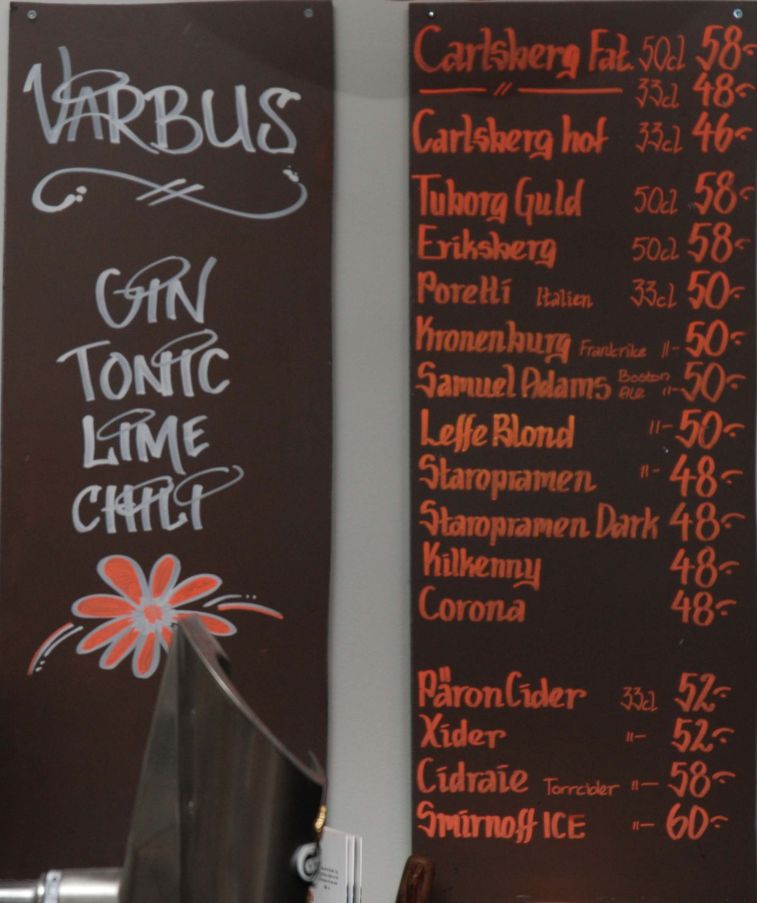 VÅRBUS
GIN
TONIC
LIME
CHILI
Carlsberg Fat. 50cl 58:-
—"— 33cl 48:-
Carlsberg hof 33cl 46:-
Tuborg Guld 50cl 58:-
Eriksberg 50cl 58:-
Poretti Italien 33cl 50:-
Kronenburg Frankrike "- 50:-
Samuel Adams Boston Ale "- 50:-
Leffe Blond "- 50:-
Staropramen "- 48:-
Staropramen Dark 48:-
Kilkenny 48:-
Corona 48:-
Päron Cider 33cl 52:-
Xider "- 52:-
Cidraie Torrcider "- 58:-
Smirnoff ICE "- 60:-